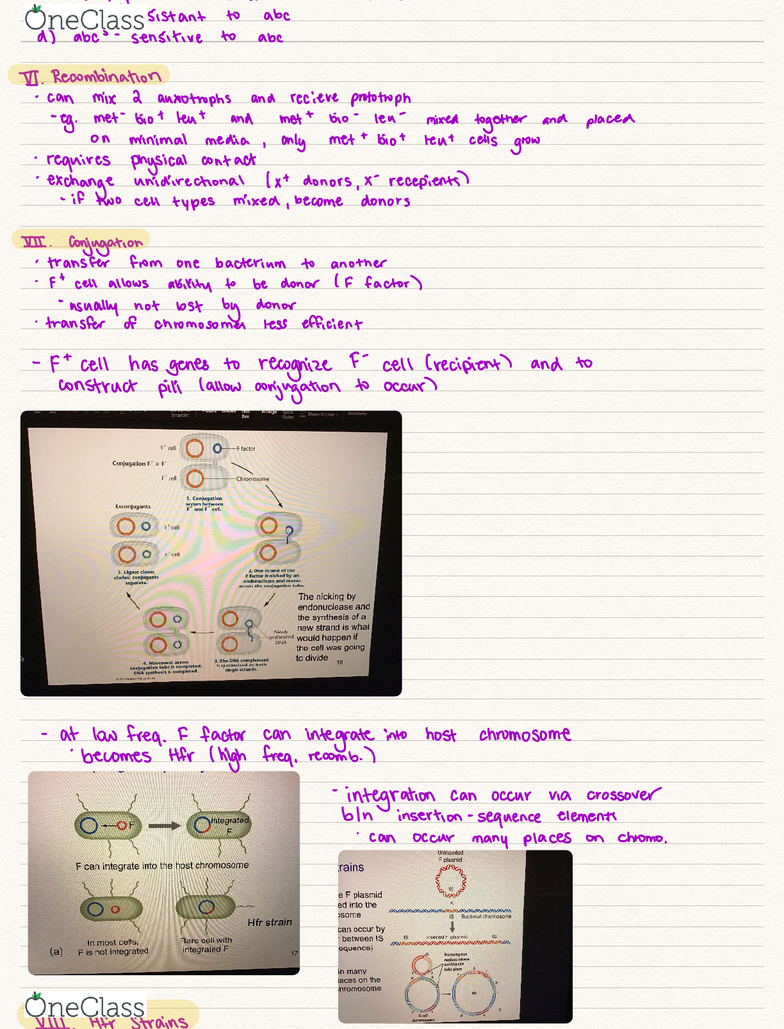 OneClass
sistant to abc
d) abcˢ - sensitive to abc
VI. Recombination
· can mix 2 auxotrophs and recieve prototroph
- eg. met⁻ bio⁺ leu⁺ and met⁺ bio⁻ leu⁻ mixed together and placed
on minimal media, only met⁺ bio⁺ leu⁺ cells grow
· requires physical contact
· exchange unidirectional (x⁺ donors, x⁻ recepients)
- if two cell types mixed, become donors
VII. Conjugation
· transfer from one bacterium to another
· F⁺ cell allows ability to be donor (F factor)
- usually not lost by donor
· transfer of chromosomes less efficient
- F⁺ cell has genes to recognize F⁻ cell (recipient) and to
construct pili (allow conjugation to occur)
F⁺ cell
F factor
Conjugation F⁺ × F⁻
F⁻ cell
Chromosome
1. Conjugation
occurs between
F⁺ and F⁻ cell.
Exconjugants
F⁺ cell
F⁺ cell
5. Ligase closes
circles; conjugants
separate.
2. One strand of the
F factor is nicked by an
endonuclease and moves
across the conjugation tube.
The nicking by
endonuclease and
the synthesis of a
new strand is what
would happen if
the cell was going
to divide
16
Newly
synthesized
DNA
4. Movement across
conjugation tube is completed;
DNA synthesis is completed.
3. The DNA complement
is synthesized on both
single strands.
- at low freq. F factor can integrate into host chromosome
· becomes Hfr (high freq. recomb.)
F
Integrated
F
F can integrate into the host chromosome
Hfr strain
(a)
In most cells,
F is not integrated
Rare cell with
integrated F
17
- integration can occur via crossover
b/n insertion-sequence elements
· can occur many places on chromo.
rains
Uninserted
F plasmid
IS
e F plasmid
ed into the
osome
X
IS Bacterial chromosome
can occur by
r between IS
equence)
IS Inserted F plasmid IS
in many
laces on the
hromosome
OneClass
VIII. Hfr Strains